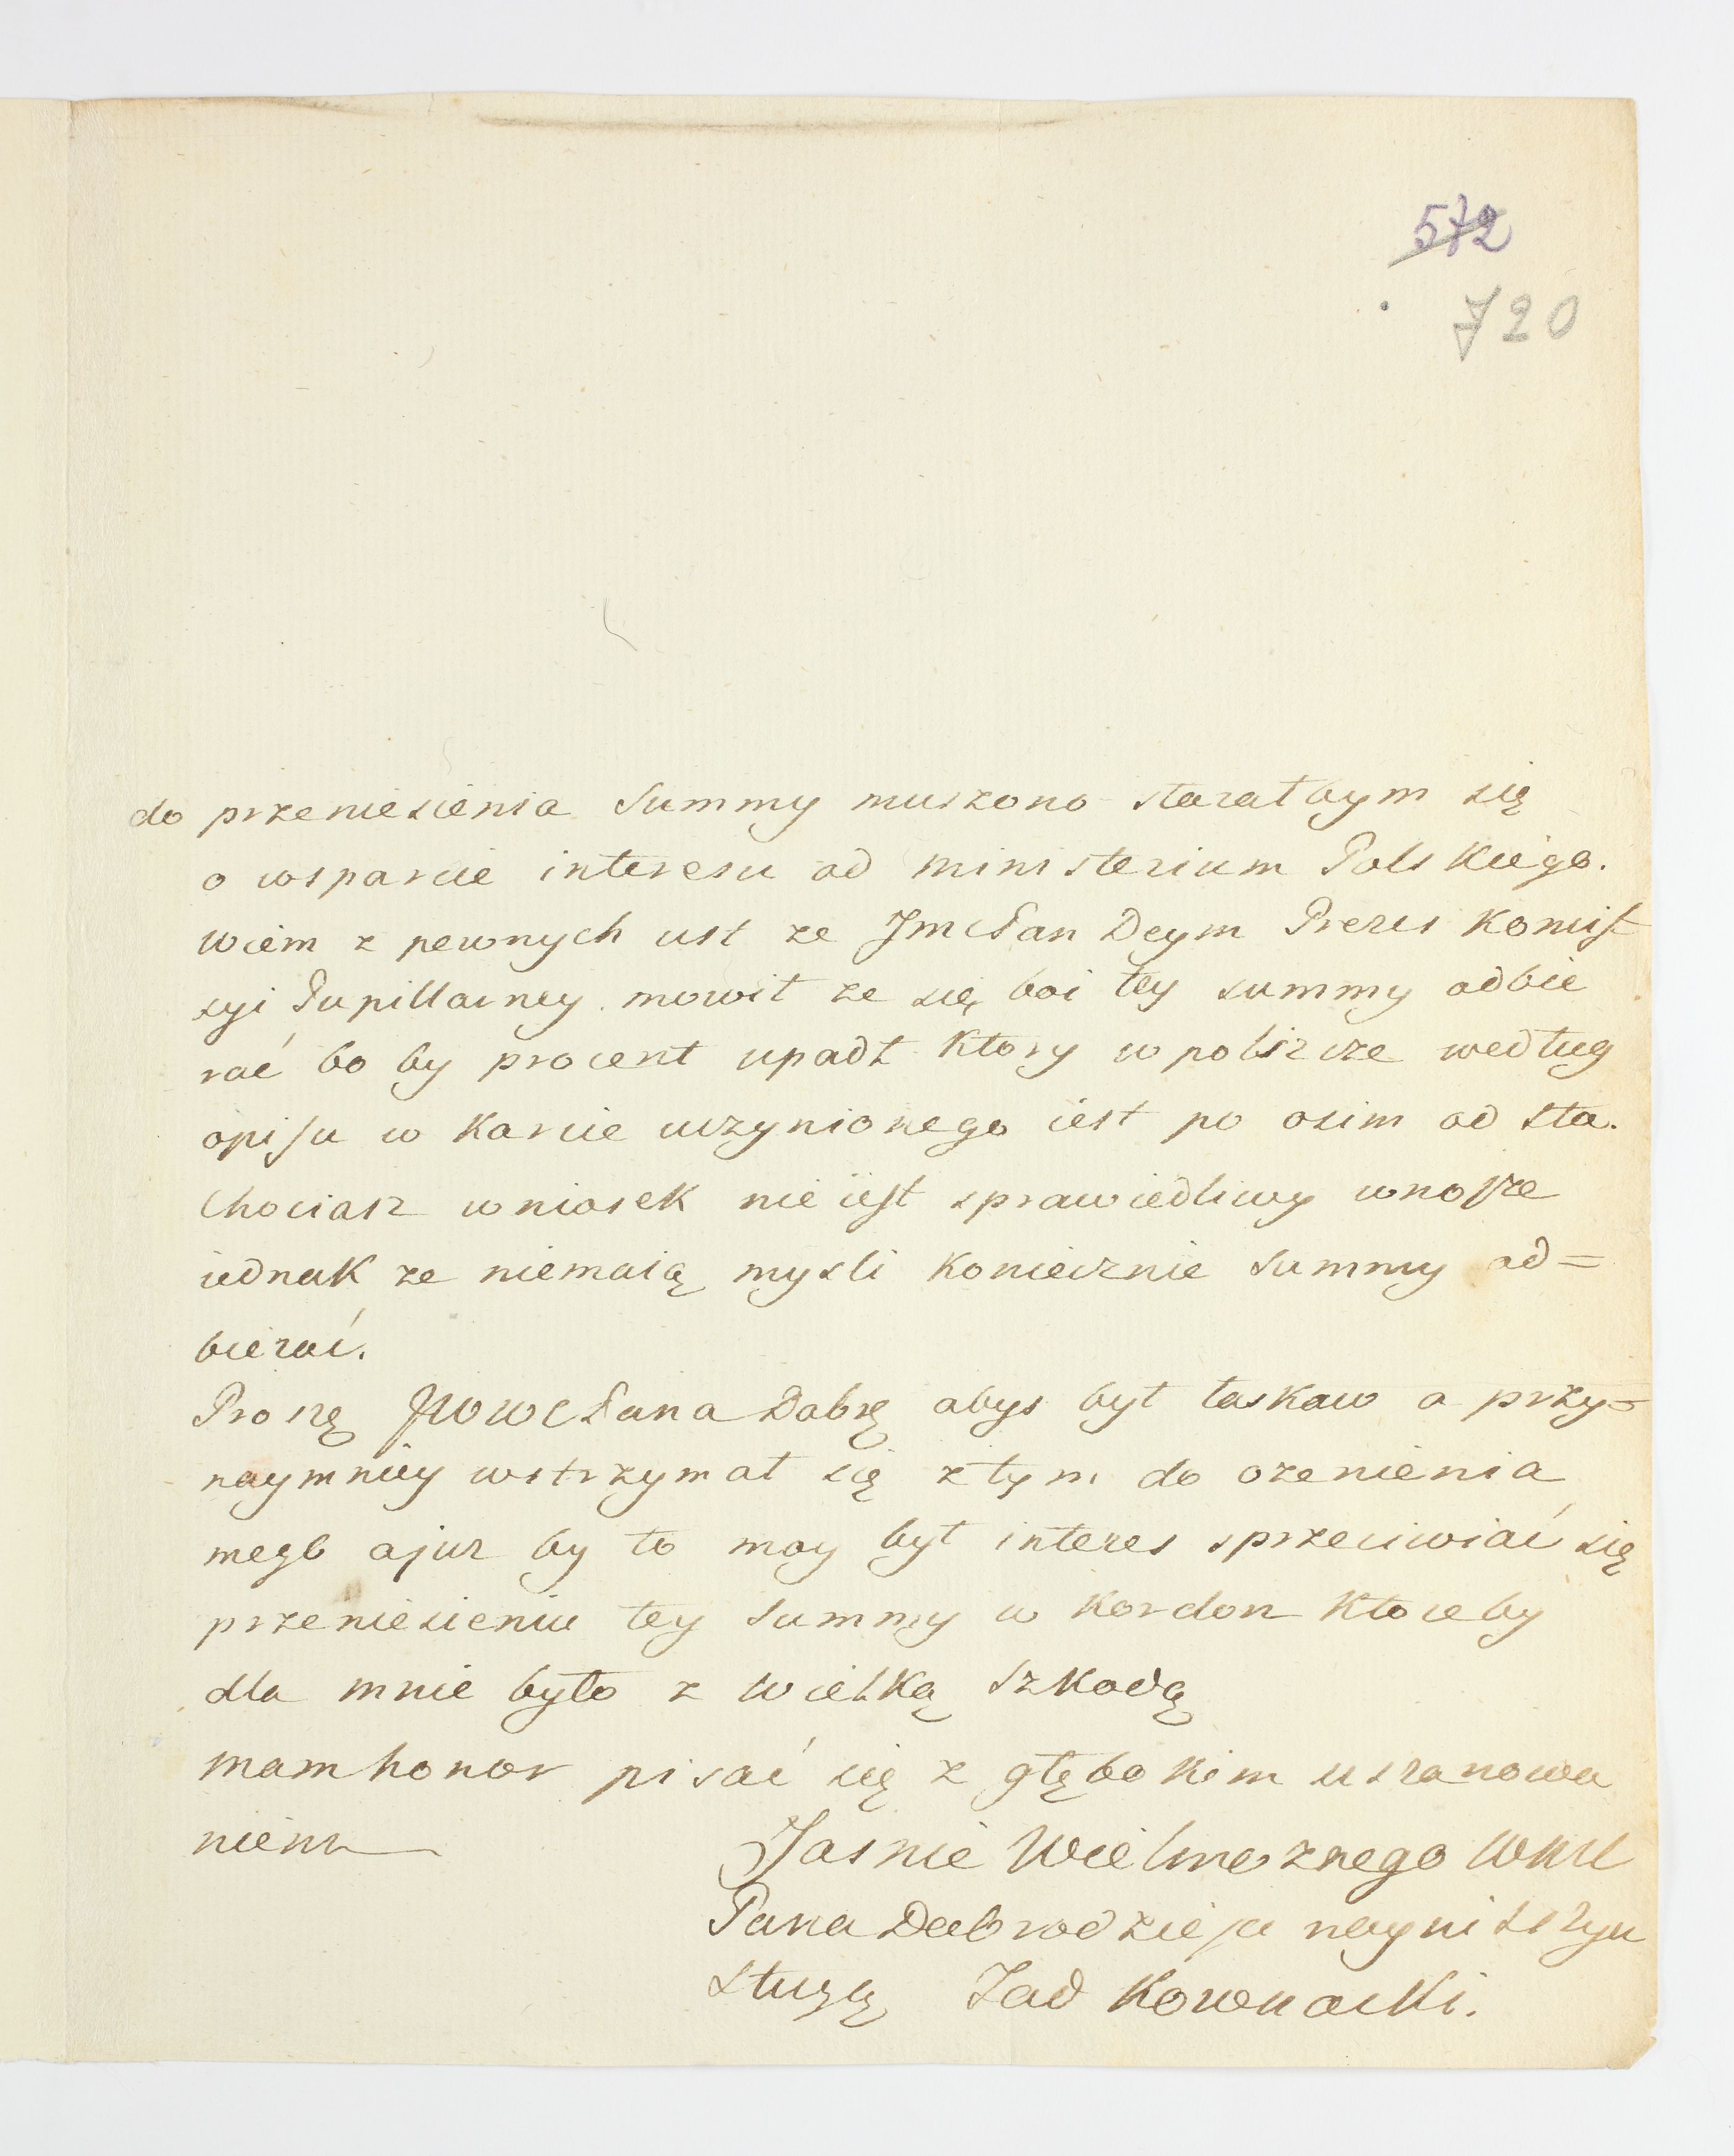 572
720
do przeniesienia Summy muszono staratbym się
o wsparcie interesu od ministerium Polskiego.
Wiem z pewnych ust ze JmcPan Deym Prezes Komis
syi Pupillarney mowit ze się boi tey summy odbie
rać bo by procent upadt Ktory w polszcze wedtug
opisu w Karcie uczynionego iest po osim od sta.
Chociasz wniosek nie iest sprawiedliwy wnosze
iednak ze niemaią mysli Koniecznie Summy od=
bierać.
Proszę JWWCPana Dobrę abys byt taskaw a przy=
naymniey wstrzymat się z tym do ozenienia
mego ajuz by to moy byt interes sprzeciwiać się
przeniesieniu tey Summy w Kordon Ktoreby
dla mnie byto z wielką szkodą
mam honor pisać się z gtębokim uszanowa
niem
Jasnie Wielmoznego
Pana Dobrodzieja nayniszszym
stugą Tad Kownacki.